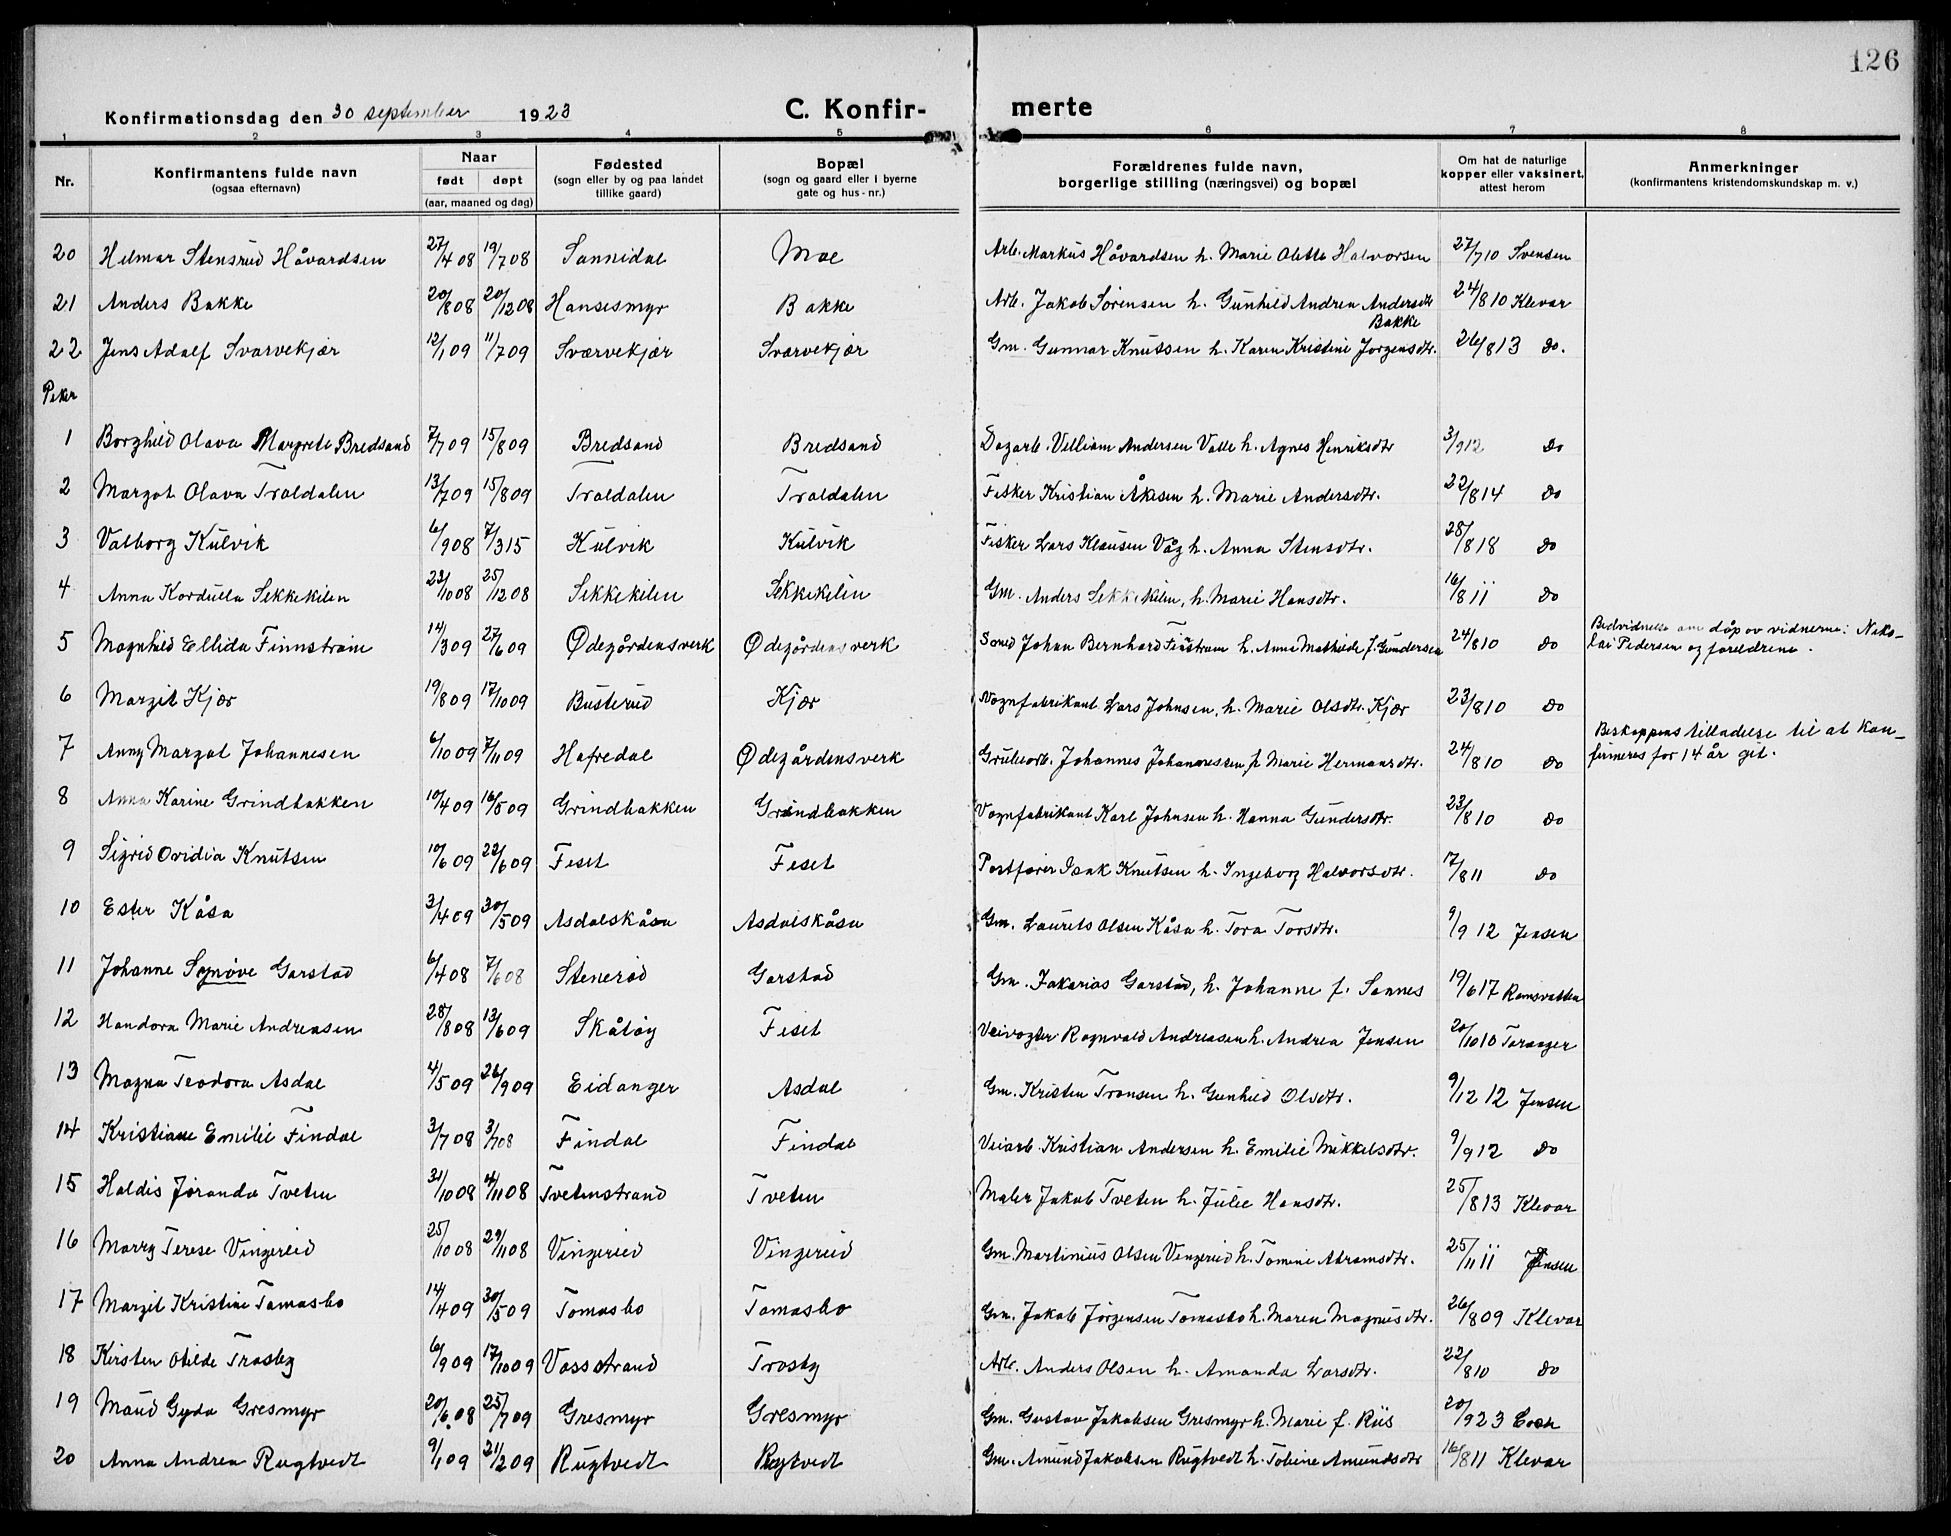 126
Konfirmationsdag den 30 september 1923 C. Konfir- merte
1 2 3 4 5 6 7 8
Nr. Konfirmantens fulde navn (ogsaa efternavn) Naar født døpt (aar, maaned og dag) Fødested (sogn eller by og paa landet tillike gaard) Bopæl (sogn og gaard eller i byerne gate og hus-nr.) Forældrenes fulde navn, borgerlige stilling (næringsvei) og bopæl Om hat de naturlige kopper eller vaksinert, attest herom Anmerkninger (konfirmantens kristendomskundskap m. v.)
20 Helmar Stensrud Håvardsen 27/4 08 19/7 08 Sannidal Moe Arb. Markus Håvardsen h. Marie Olette Halvorsen 27/7 10 Svensen
21 Anders Bakke 20/8 08 20/12 08 Hansesmyr Bakke Arb. Jakob Sørensen h. Gunhild Andrea Andersdtr Bakke 24/8 10 Klevar
22 Jens Adolf Svarvekjær 12/1 09 11/7 09 Sværvekjær Svarvekjær Gm. Gunnar Knutsen h. Karen Kristine Jorgensdtr. 26/8 13 do.
Piker
1 Borghild Olava Margrete Bredsand 7/7 09 15/8 09 Bredsand Bredsand Dagarb. Villiam Andersen Valle h. Agnes Henriksdtr 3/9 12 do
2 Margot Olava Traldalen 13/7 09 15/8 09 Traldalen Traldalen Fisker Kristian Åkesen h. Marie Andersdtr. 22/8 14 do
3 Valborg Kulvik 6/9 08 7/3 15 Kulvik Kulvik Fisker Lars Klausen Våg h. Anna Stensdtr. 28/8 18 do
4 Anna Kordulla Sekkekilen 23/10 08 25/12 08 Sekkekilen Sekkekilen Gm. Anders Sekkekilen, h. Marie Hansdtr. 16/8 11 do
5 Magnhild Ellida Finnstrøm 14/3 09 27/6 09 Ødegårdensverk Ødegårdensverk Smed Johan Bernhard Finstrøm h. Anna Mathilde f. Gundersen 24/8 10 do Bedvidnelse om dåp av vidnerne: Niko-
lai Pedersen og foreldrene.
6 Margit Kjær 19/8 09 17/10 09 Busterud Kjær Vognfabrikant Lars Johnsen, h. Marie Olsdtr. Kjær 23/8 10 do
7 Anny Margot Johannesen 6/10 09 7/11 09 Hafredal Ødegårdensverk Grubearb. Johannes Johannessen h. Marie Hermansdtr. 24/8 10 do Biskoppens tilladelse til at kon-
firmeres for 14 år git.
8 Anna Karine Grindbakken 10/4 09 16/5 09 Grindbakken Grindbakken Vognfabrikant Karl Johnsen h. Hanna Gundersdtr. 23/8 10 do
9 Sigrid Ovidia Knutsen 10/6 09 22/6 09 Feset Feset Postfører Isak Knutsen h. Ingeborg Halvorsdtr. 17/8 11 do
10 Ester Kåsa 3/4 09 30/5 09 Asdalskåsa Asdalskåsa Gm. Laurets Olsen Kåsa h. Tora Torsdtr. 9/9 12 Jensen
11 Johanne Synøve Garstad 6/4 08 7/6 08 Stenerød Garstad Gm. Zakarias Garstad, h. Johanne f. Sannes 19/6 17 Ramsvatten
12 Handora Marie Andreasen 28/8 08 13/6 09 Skåtøy Feset Veivogter Ragnvald Andreasen h. Andrea Jensen 20/10 10 Taranger
13 Magna Teodora Asdal 4/5 09 26/9 09 Eidanger Asdal Gm. Kristen Transen h. Gunhild Olsdtr. 9/12 12 Jensen
14 Kristiane Emilie Findal 3/7 08 3/7 08 Findal Findal Veiarb. Kristian Andersen h. Emilie Mikkelsdtr. 9/9 12 do
15 Haldis Joranda Tveten 31/10 08 4/11 08 Tvetenstrand Tveten Maler Jakob Tveten h. Julie Hansdtr. 25/8 13 Klevar
16 Marry Terese Vingereid 25/10 08 29/11 08 Vingereid Vingereid Gm. Martinius Olsen Vingereid h. Tomine Abramsdtr. 25/11 11 Jensen
17 Margit Kristine Tomasbo 14/4 09 30/5 09 Tomasbo Tomasbo Gm. Jakob Jörgensen Tomasbo h. Maren Magnusdtr. 26/8 09 Klevar
18 Kirsten Otilde Trosby 6/9 09 17/10 09 Vasstrand Trosby Arb. Anders Olsen h. Amanda Larsdtr. 22/8 10 do
19 Maud Gyda Gresmyr 20/6 08 25/7 09 Gresmyr Gresmyr Gm. Gustav Jakobsen Gresmyr h. Marie f. Riis 20/9 23
20 Anna Andrea Rugtvedt 9/1 09 21/2 09 Rugtvedt Rugtvedt Gm. Amund Jakobsen Rugtvedt h. Toline Amundsdtr 16/8 11 Klevar